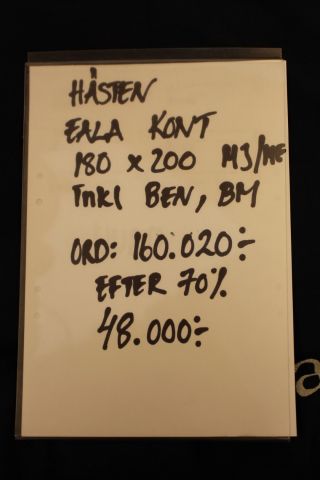 HÄSTEN
EALA KONT
180 x 200 MJ/ME
Inkl BEN, BM
ORD: 160.020:-
EFTER 70%
48.000:-
a